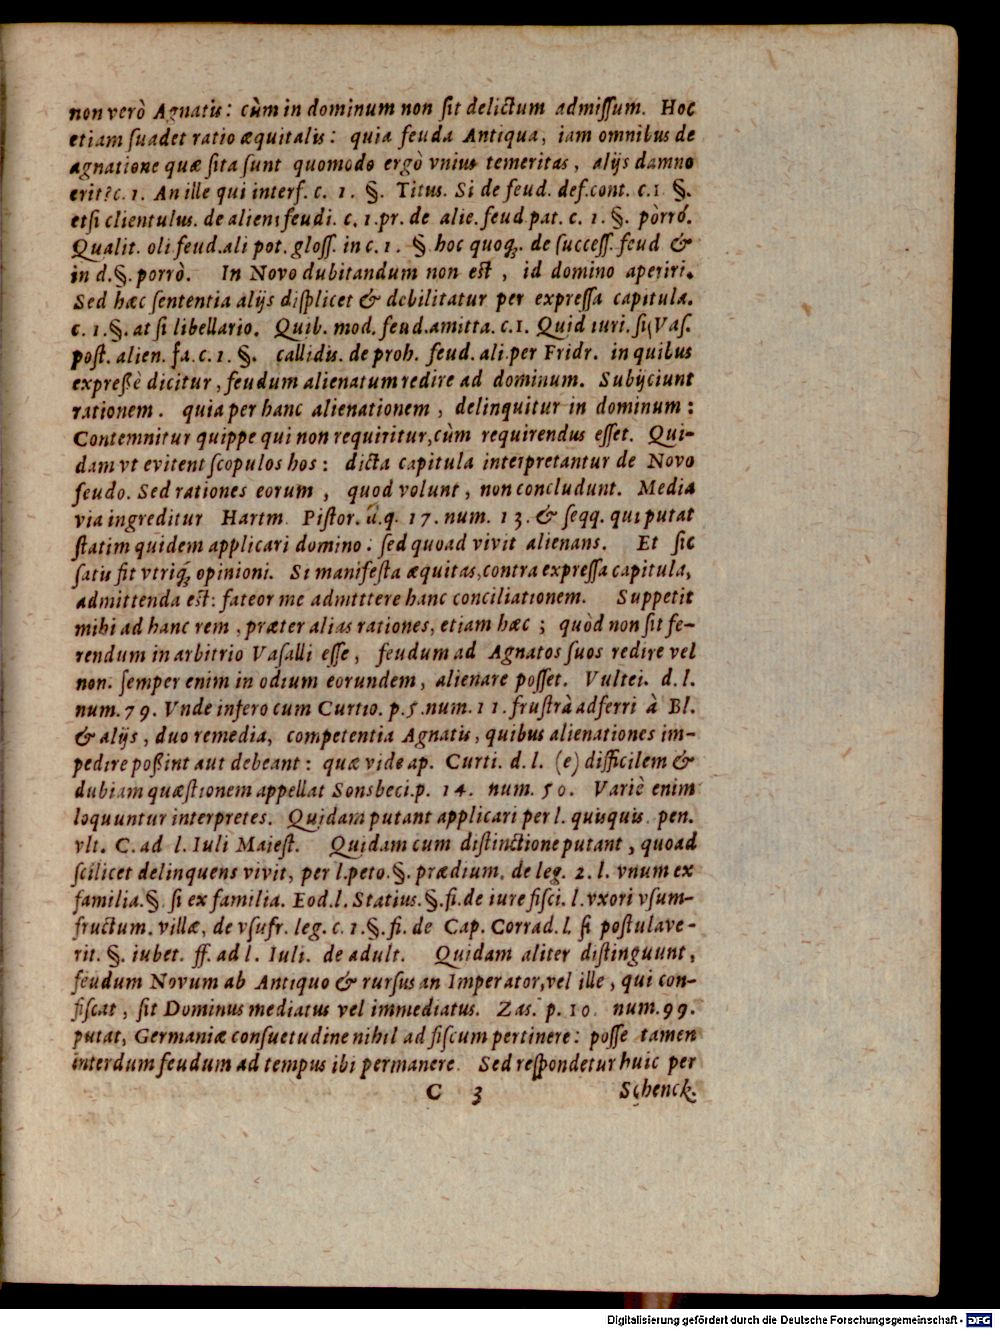 non verò Agnatis: cùm in dominum non sit delictum admissum. Hoc
etiam suadet ratio æquitatis: quia feuda Antiqua, iam omnibus de
agnatione quæ sita sunt quomodo ergò vnius temeritas, alijs damno
erit? c. 1. An ille qui interf. c. 1. §. Titus. Si de feud. def. cont. c. 1 §.
etsi clientulus. de alien. feudi. c. 1. pr. de alie. feud. pat. c. 1. §. pòrrò.
Qualit. oli feud. ali pot. gloss. in c. 1. § hoc quoq;. de success. feud &
in d. §. porrò. In Novo dubitandum non est, id domino aperiri.
Sed hæc sententia alijs displicet & debilitatur per expressa capitula.
c. 1. §. at si libellario. Quib. mod. feud. amitta. c. 1. Quid iuri. si (Vas.
post. alien. fa. c. 1. §. callidis. de proh. feud. ali. per Fridr. in quibus
expreßè dicitur, feudum alienatum redire ad dominum. Subijciunt
rationem. quia per hanc alienationem, delinquitur in dominum:
Contemnitur quippe qui non requiritur, cùm requirendus esset. Qui-
dam vt evitent scopulos hos: dicta capitula interpretantur de Novo
feudo. Sed rationes eorum, quod volunt, non concludunt. Media
via ingreditur Hartm. Pistor. d. q. 17. num. 13. & seqq. qui putat
statim quidem applicari domino: sed quoad vivit alienans. Et sic
satis fit vtriq; opinioni. Si manifesta æquitas, contra expressa capitula,
admittenda est: fateor me admittere hanc conciliationem. Suppetit
mihi ad hanc rem, præter alias rationes, etiam hæc; quòd non sit fe-
rendum in arbitrio Vasalli esse, feudum ad Agnatos suos redire vel
non. semper enim in odium eorundem, alienare posset. Vultei. d. l.
num. 79. Vnde infero cum Curtio. p. 5. num. 11. frustrà adferri à Bl.
& alijs, duo remedia, competentia Agnatis, quibus alienationes im-
pedire poßint aut debeant: quæ vide ap. Curti. d. l. (e) difficilem &
dubiam quæstionem appellat Sonsbeci. p. 14. num. 50. Variè enim
loquuntur interpretes. Quidam putant applicari per l. quisquis. pen.
vlt. C. ad l. Iuli Maiest. Quidam cum distinctione putant, quoad
scilicet delinquens vivit, per l. peto. §. prædium. de leg. 2. l. vnum ex
familia. §. si ex familia. Eod. l. Statius. §. fi. de iure fisci. l. vxori vsum-
fructum. villæ, de vsufr. leg. c. 1. §. fi. de Cap. Corrad. l. si postulave-
rit. §. iubet. ff. ad l. Iuli. de adult. Quidam aliter distinguunt,
feudum Novum ab Antiquo & rursus an Imperator, vel ille, qui con-
fiscat, sit Dominus mediatus vel immediatus. Zas. p. 10. num. 99.
putat, Germaniæ consuetudine nihil ad fiscum pertinere: posse tamen
interdum feudum ad tempus ibi permanere. Sed respondetur huic per
C 3 Schenck.
Digitalisierung gefördert durch die Deutsche Forschungsgemeinschaft - DFG